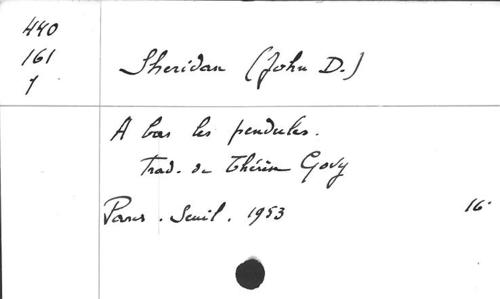 440
161
1
Sheridan (John D.)
A bas les pendules.
Trad. de Thérèse Govy
Paris. Seuil. 1953 16°